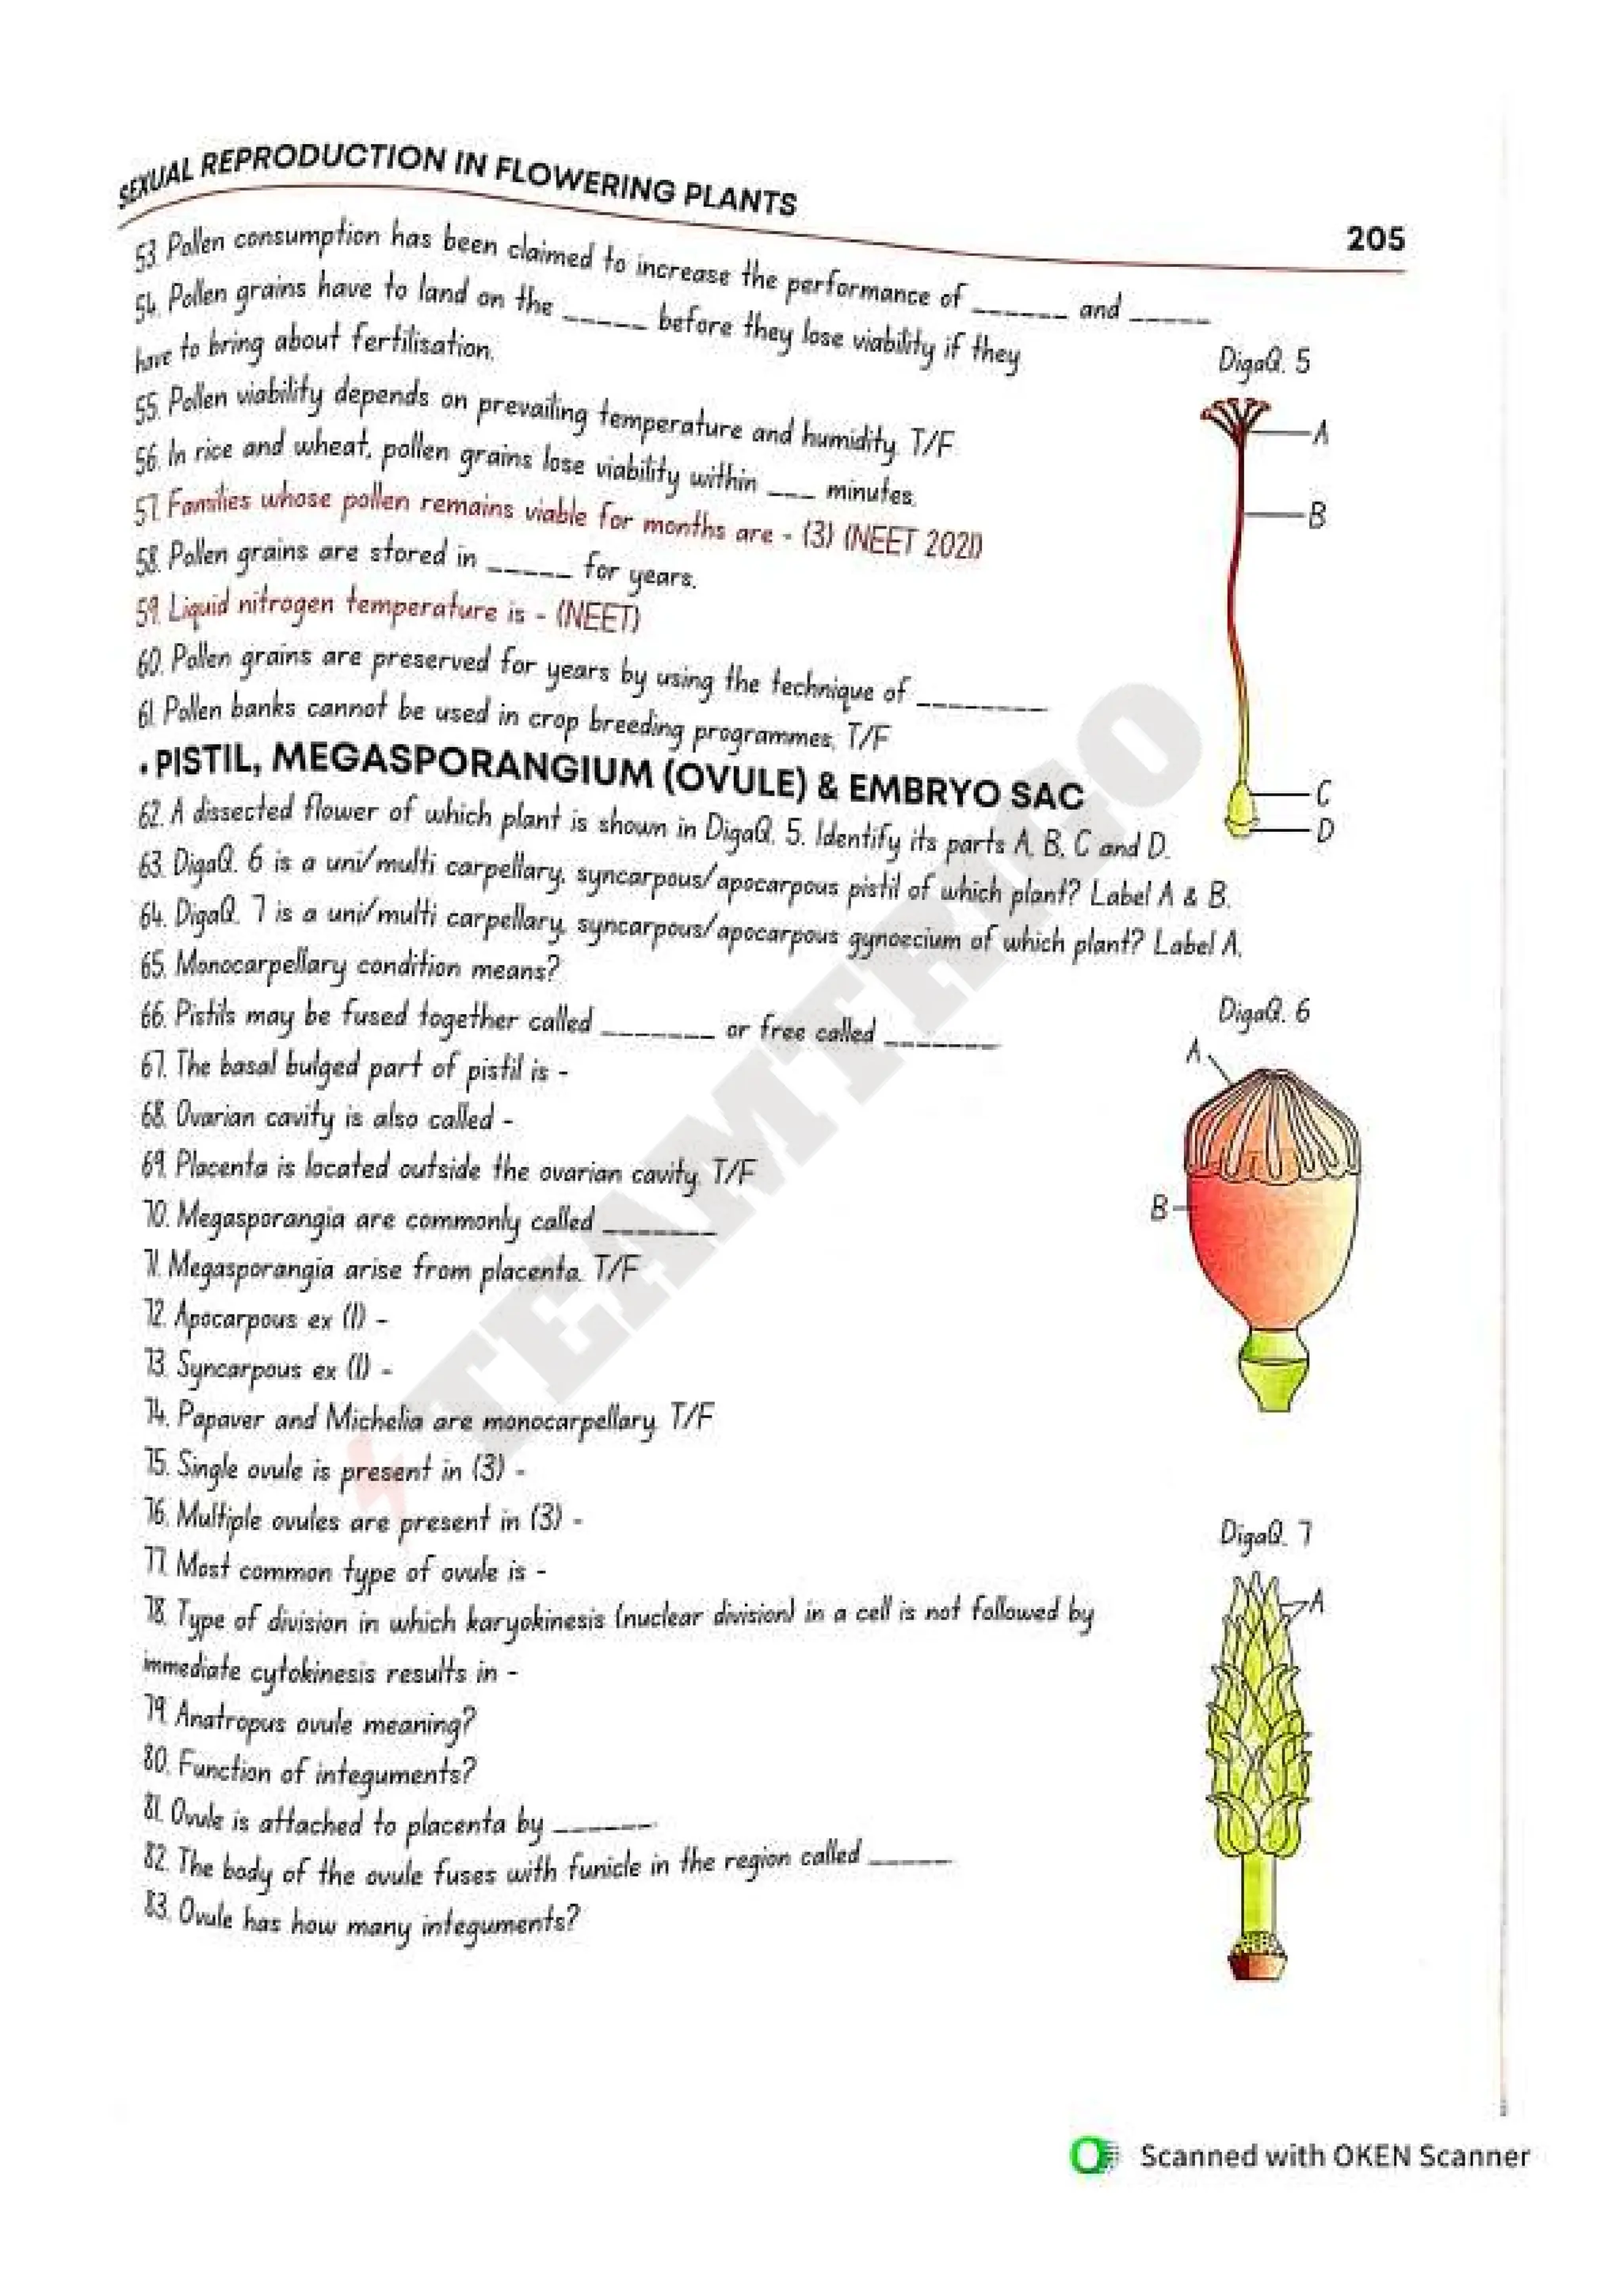 SEXUAL REPRODUCTION IN FLOWERING PLANTS
205
53. Pollen consumption has been claimed to increase the performance of ______ and _____
54. Pollen grains have to land on the _____ before they lose viability if they
have to bring about fertilisation.
55. Pollen viability depends on prevailing temperature and humidity. T/F
56. In rice and wheat, pollen grains lose viability within ___ minutes.
57. Families whose pollen remains viable for months are - (3) (NEET 2021)
58. Pollen grains are stored in _____ for years.
59. Liquid nitrogen temperature is - (NEET)
60. Pollen grains are preserved for years by using the technique of ________
61. Pollen banks cannot be used in crop breeding programmes. T/F
• PISTIL, MEGASPORANGIUM (OVULE) & EMBRYO SAC
62. A dissected flower of which plant is shown in DigaQ. 5. Identify its parts A, B, C and D.
63. DigaQ. 6 is a uni/multi carpellary, syncarpous/apocarpous pistil of which plant? Label A & B.
64. DigaQ. 7 is a uni/multi carpellary, syncarpous/apocarpous gynoecium of which plant? Label A.
65. Monocarpellary condition means?
66. Pistils may be fused together called _______ or free called _______
67. The basal bulged part of pistil is -
68. Ovarian cavity is also called -
69. Placenta is located outside the ovarian cavity. T/F
70. Megasporangia are commonly called _______
71. Megasporangia arise from placenta. T/F
72. Apocarpous ex (1) -
73. Syncarpous ex (1) -
74. Papaver and Michelia are monocarpellary. T/F
75. Single ovule is present in (3) -
76. Multiple ovules are present in (3) -
77. Most common type of ovule is -
78. Type of division in which karyokinesis (nuclear division) in a cell is not followed by
immediate cytokinesis results in -
79. Anatropus ovule meaning?
80. Function of integuments?
81. Ovule is attached to placenta by ______
82. The body of the ovule fuses with funicle in the region called _____
83. Ovule has how many integuments?
DigaQ. 5
A
B
C
D
DigaQ. 6
A
B
DigaQ. 7
A
Scanned with OKEN Scanner